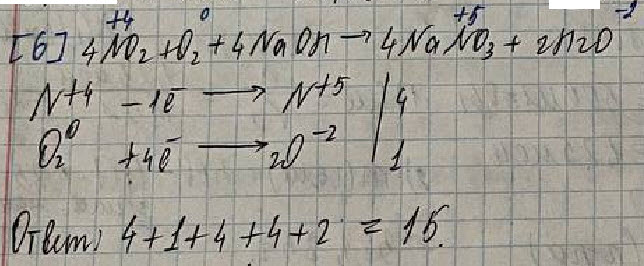 [6] 4N⁺⁴O₂ + O₂⁰ + 4NaOH → 4NaN⁺⁵O₃ + 2H₂O⁻²
N+4 -1ē → N+5 | 4
O₂⁰ +4ē → 2O⁻² | 1
Ответ: 4+1+4+4+2 = 15.